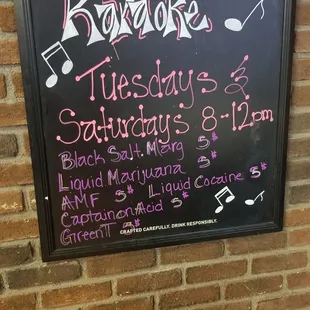 Karaoke
Tuesdays &
Saturdays 8-12pm
Black Salt Marg 5$
Liquid Marijuana 5$
AMF 5$ Liquid Cocaine 5$
Captain on Acid 5$
Green T 5$
CRAFTED CAREFULLY. DRINK RESPONSIBLY.